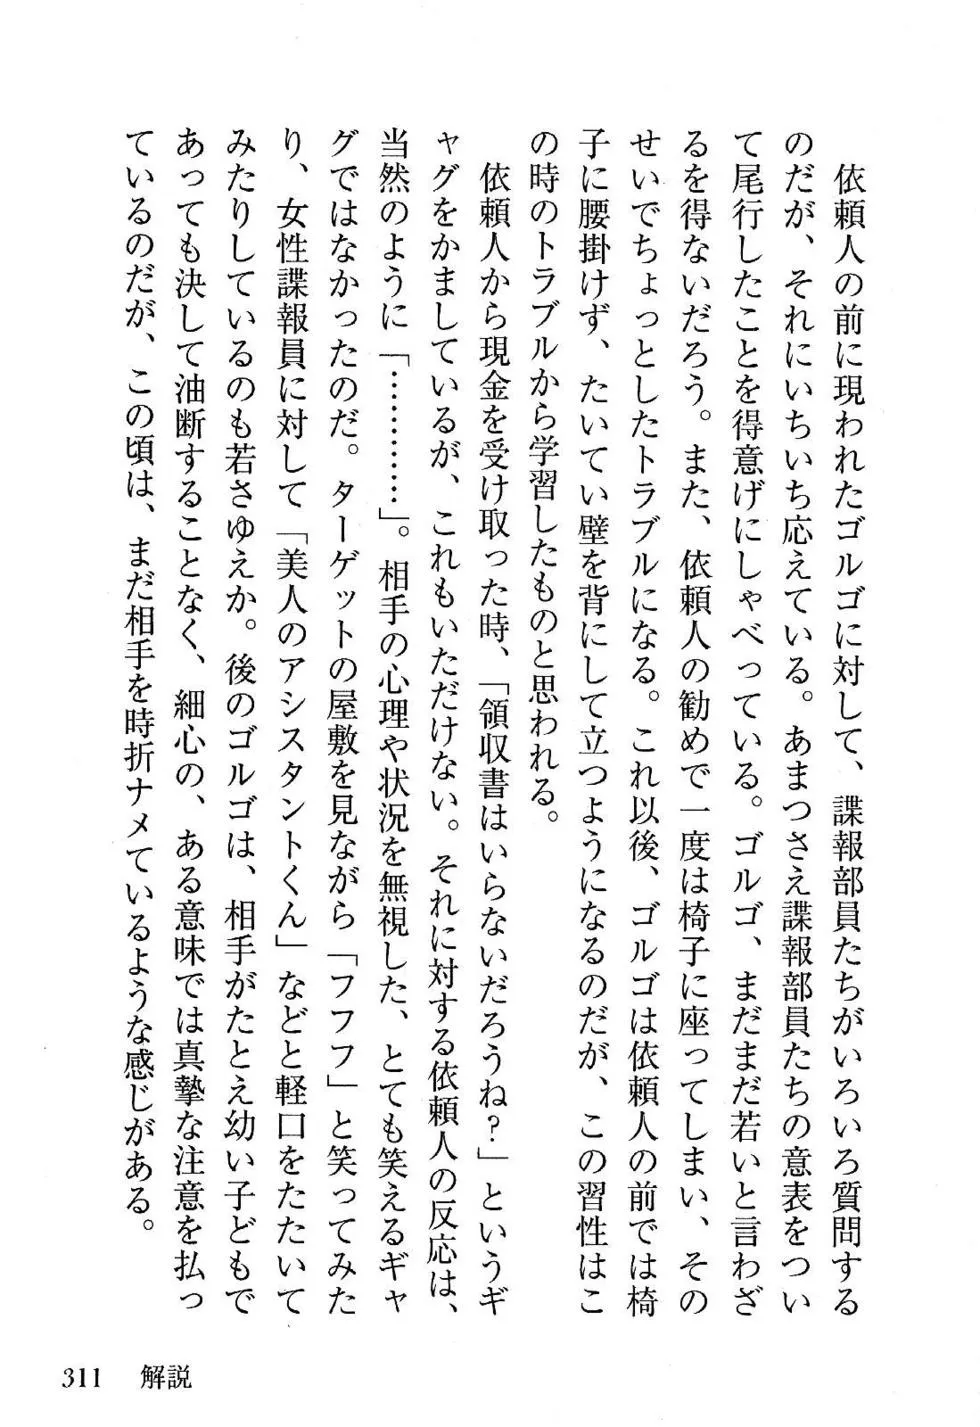 依頼人の前に現われたゴルゴに対して、諜報部員たちがいろいろ質問する
のだが、それにいちいち応えている。あまつさえ諜報部員たちの意表をつい
て尾行したことを得意げにしゃべっている。ゴルゴ、まだまだ若いと言わざ
るを得ないだろう。また、依頼人の勧めで一度は椅子に座ってしまい、その
せいでちょっとしたトラブルになる。これ以後、ゴルゴは依頼人の前では椅
子に腰掛けず、たいてい壁を背にして立つようになるのだが、この習性はこ
の時のトラブルから学習したものと思われる。
依頼人から現金を受け取った時、「領収書はいらないだろうね?」というギ
ャグをかましているが、これもいただけない。それに対する依頼人の反応は、
当然のように「…………」。相手の心理や状況を無視した、とても笑えるギャ
グではなかったのだ。ターゲットの屋敷を見ながら「フフフ」と笑ってみた
り、女性諜報員に対して「美人のアシスタントくん」などと軽口をたたいて
みたりしているのも若さゆえか。後のゴルゴは、相手がたとえ幼い子どもで
あっても決して油断することなく、細心の、ある意味では真摯な注意を払っ
ているのだが、この頃は、まだ相手を時折ナメているような感じがある。
311 解説